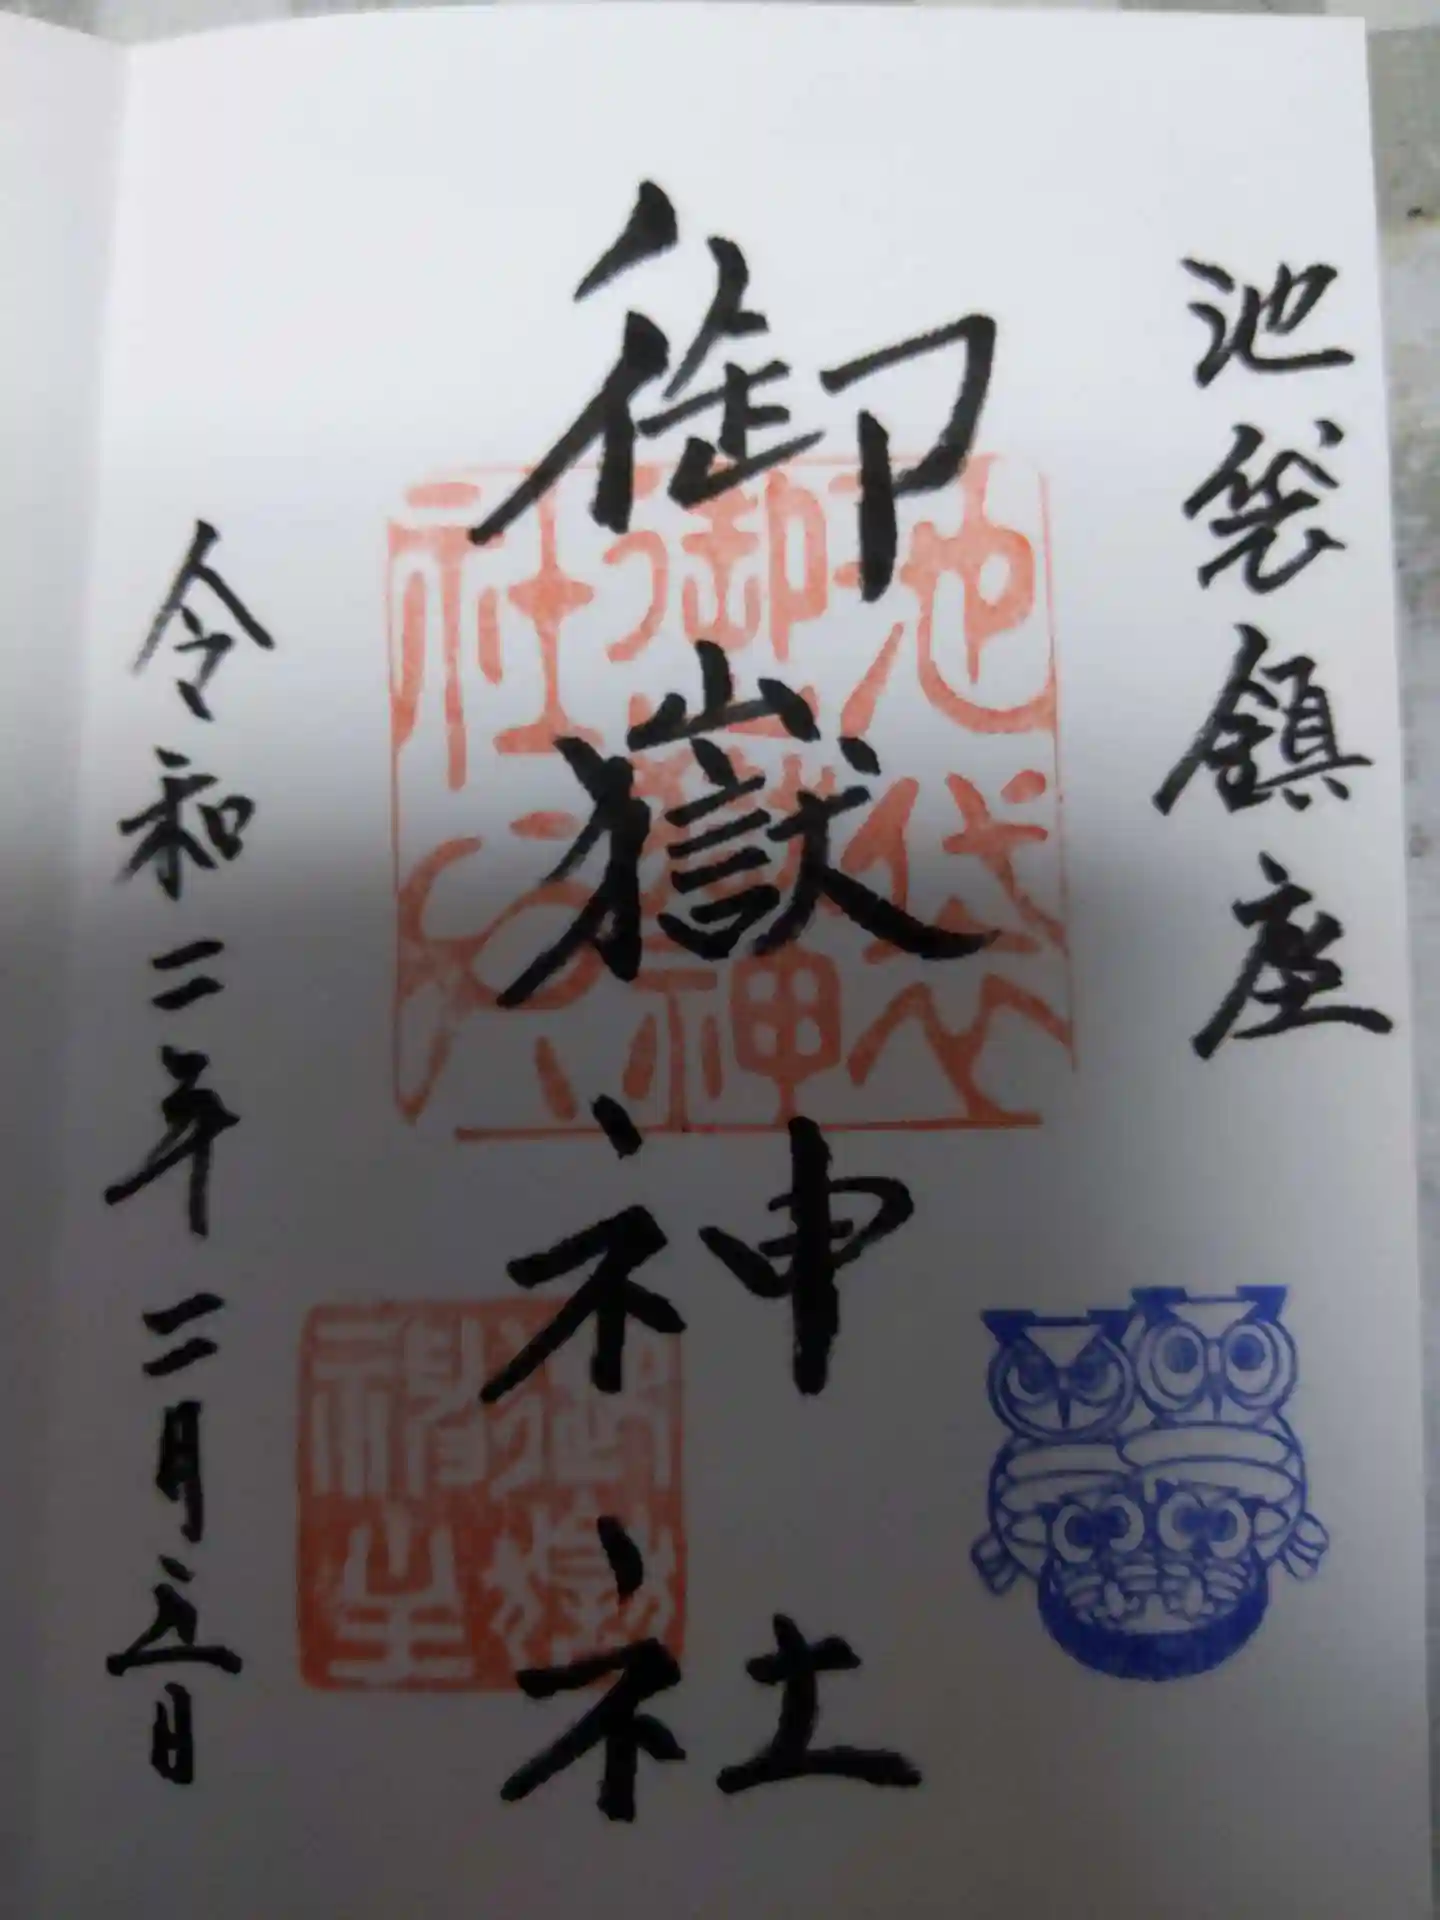 池袋鎮座
御嶽神社
令和二年二月五日
池袋
御嶽神
社